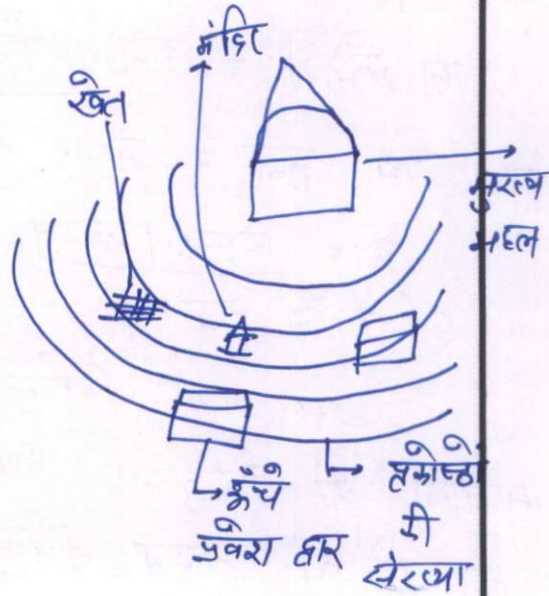 मंदिर
खेत
मुख्य
महल
ऊँचे
प्रवेश द्वार
प्रकोष्ठों
की
संख्या